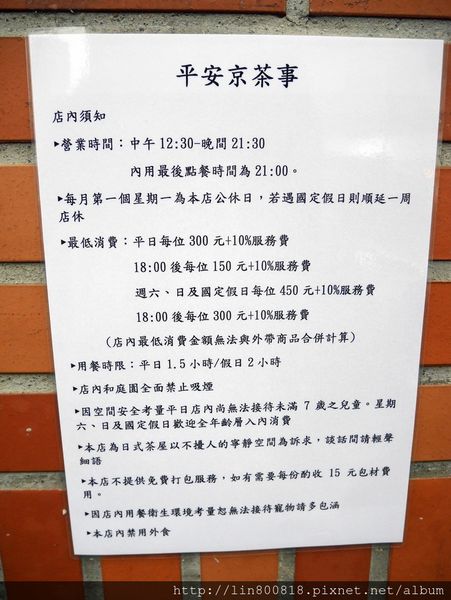 平安京茶事
店內須知
▸營業時間：中午 12:30-晚間 21:30
內用最後點餐時間為 21:00。
▸每月第一個星期一為本店公休日，若遇國定假日則順延一周
店休
▸最低消費：平日每位 300 元+10%服務費
18:00 後每位 150 元+10%服務費
週六、日及國定假日每位 450 元+10%服務費
18:00 後每位 300 元+10%服務費
(店內最低消費金額無法與外帶商品合併計算)
▸用餐時限：平日 1.5 小時/假日 2 小時
▸店內和庭園全面禁止吸煙
▸因空間安全考量平日店內尚無法接待未滿 7 歲之兒童。星期
六、日及國定假日歡迎全年齡層入內消費
▸本店為日式茶屋以不擾人的寧靜空間為訴求，談話間請輕聲
細語
▸本店不提供免費打包服務，如有需要每份酌收 15 元包材費
用。
▸因店內用餐衛生環境考量恕無法接待寵物請多包涵
▸本店內禁用外食
http://lin800818.pixnet.net/album